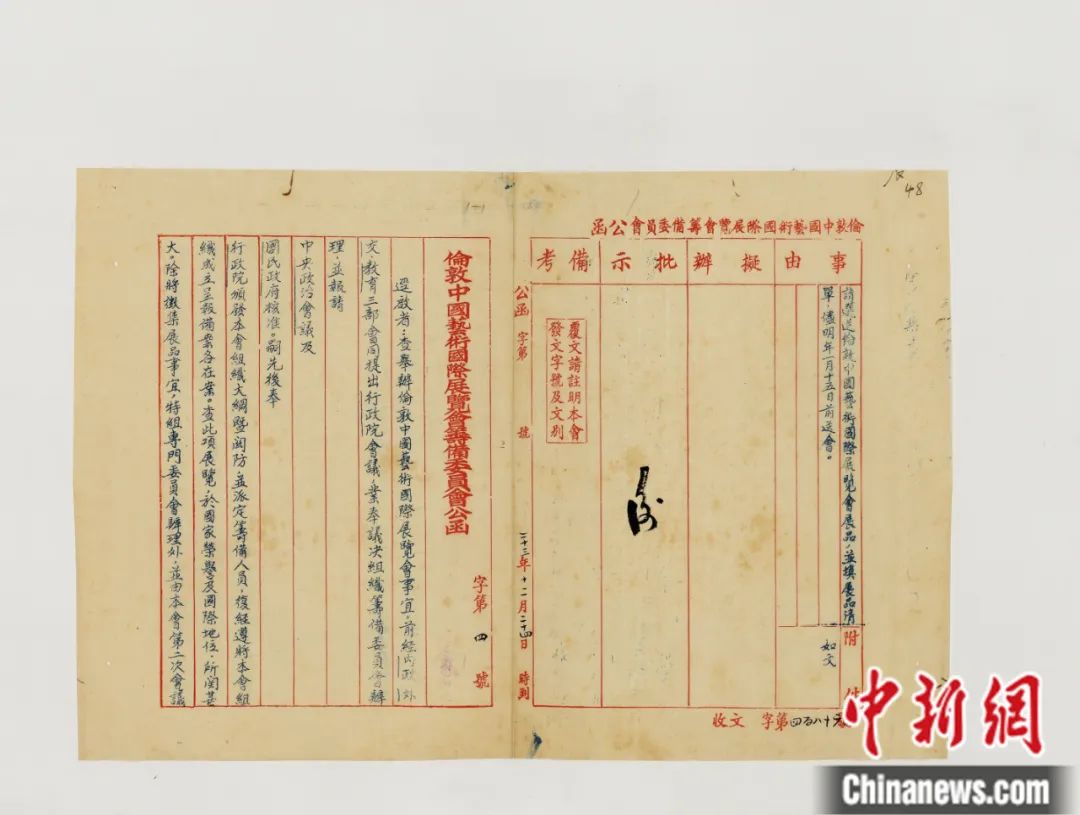 48
倫敦中國藝術國際展覽會籌備委員會公函
事由
擬辦
批示
備考
請選送倫敦中國藝術國際展覽會展品，並填展品清
單，儘明年一月十五日前送會。
附
如文
件
覆文請註明本會
發文字號及文別
公函 字第 號
二十三年十二月二十四日 時到
收文 字第四百八十 號
倫敦中國藝術國際展覽會籌備委員會公函
字第 四 號
逕啟者：查舉辦倫敦中國藝術國際展覽會事宜，前經內政外
交、教育三部會同提出行政院會議，業奉議決組織籌備委員會辦
理，並報請
中央政治會議及
國民政府核准。嗣先後奉
行政院頒發本會組織大綱暨關防，並派定籌備人員，復經遵將本會組
織成立呈報備案各在案。查此項展覽，於國家榮譽及國際地位，所關甚
大。除將徵集展品事宜，特組專門委員會辦理外，並由本會第二次會議
中新網
Chinanews.com